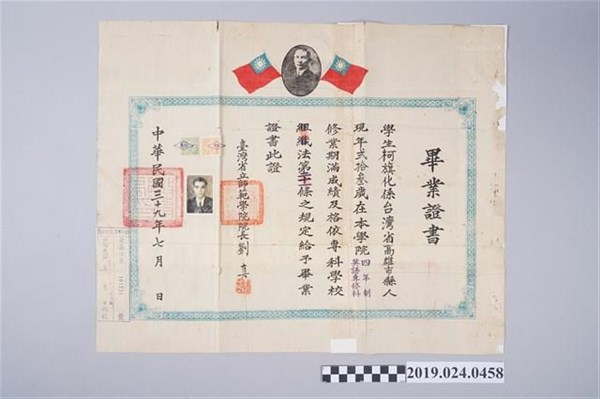 畢業證書
學生柯旗化係台灣省高雄市縣人
現年弍拾叁歲在本學院四年制英語專修科
修業期滿成績及格依專科學校
組織法第十一條之規定給予畢業
證書此證
臺灣省立師範學院院長劉真
中華民國三十九年七月 日
2019.024.0458